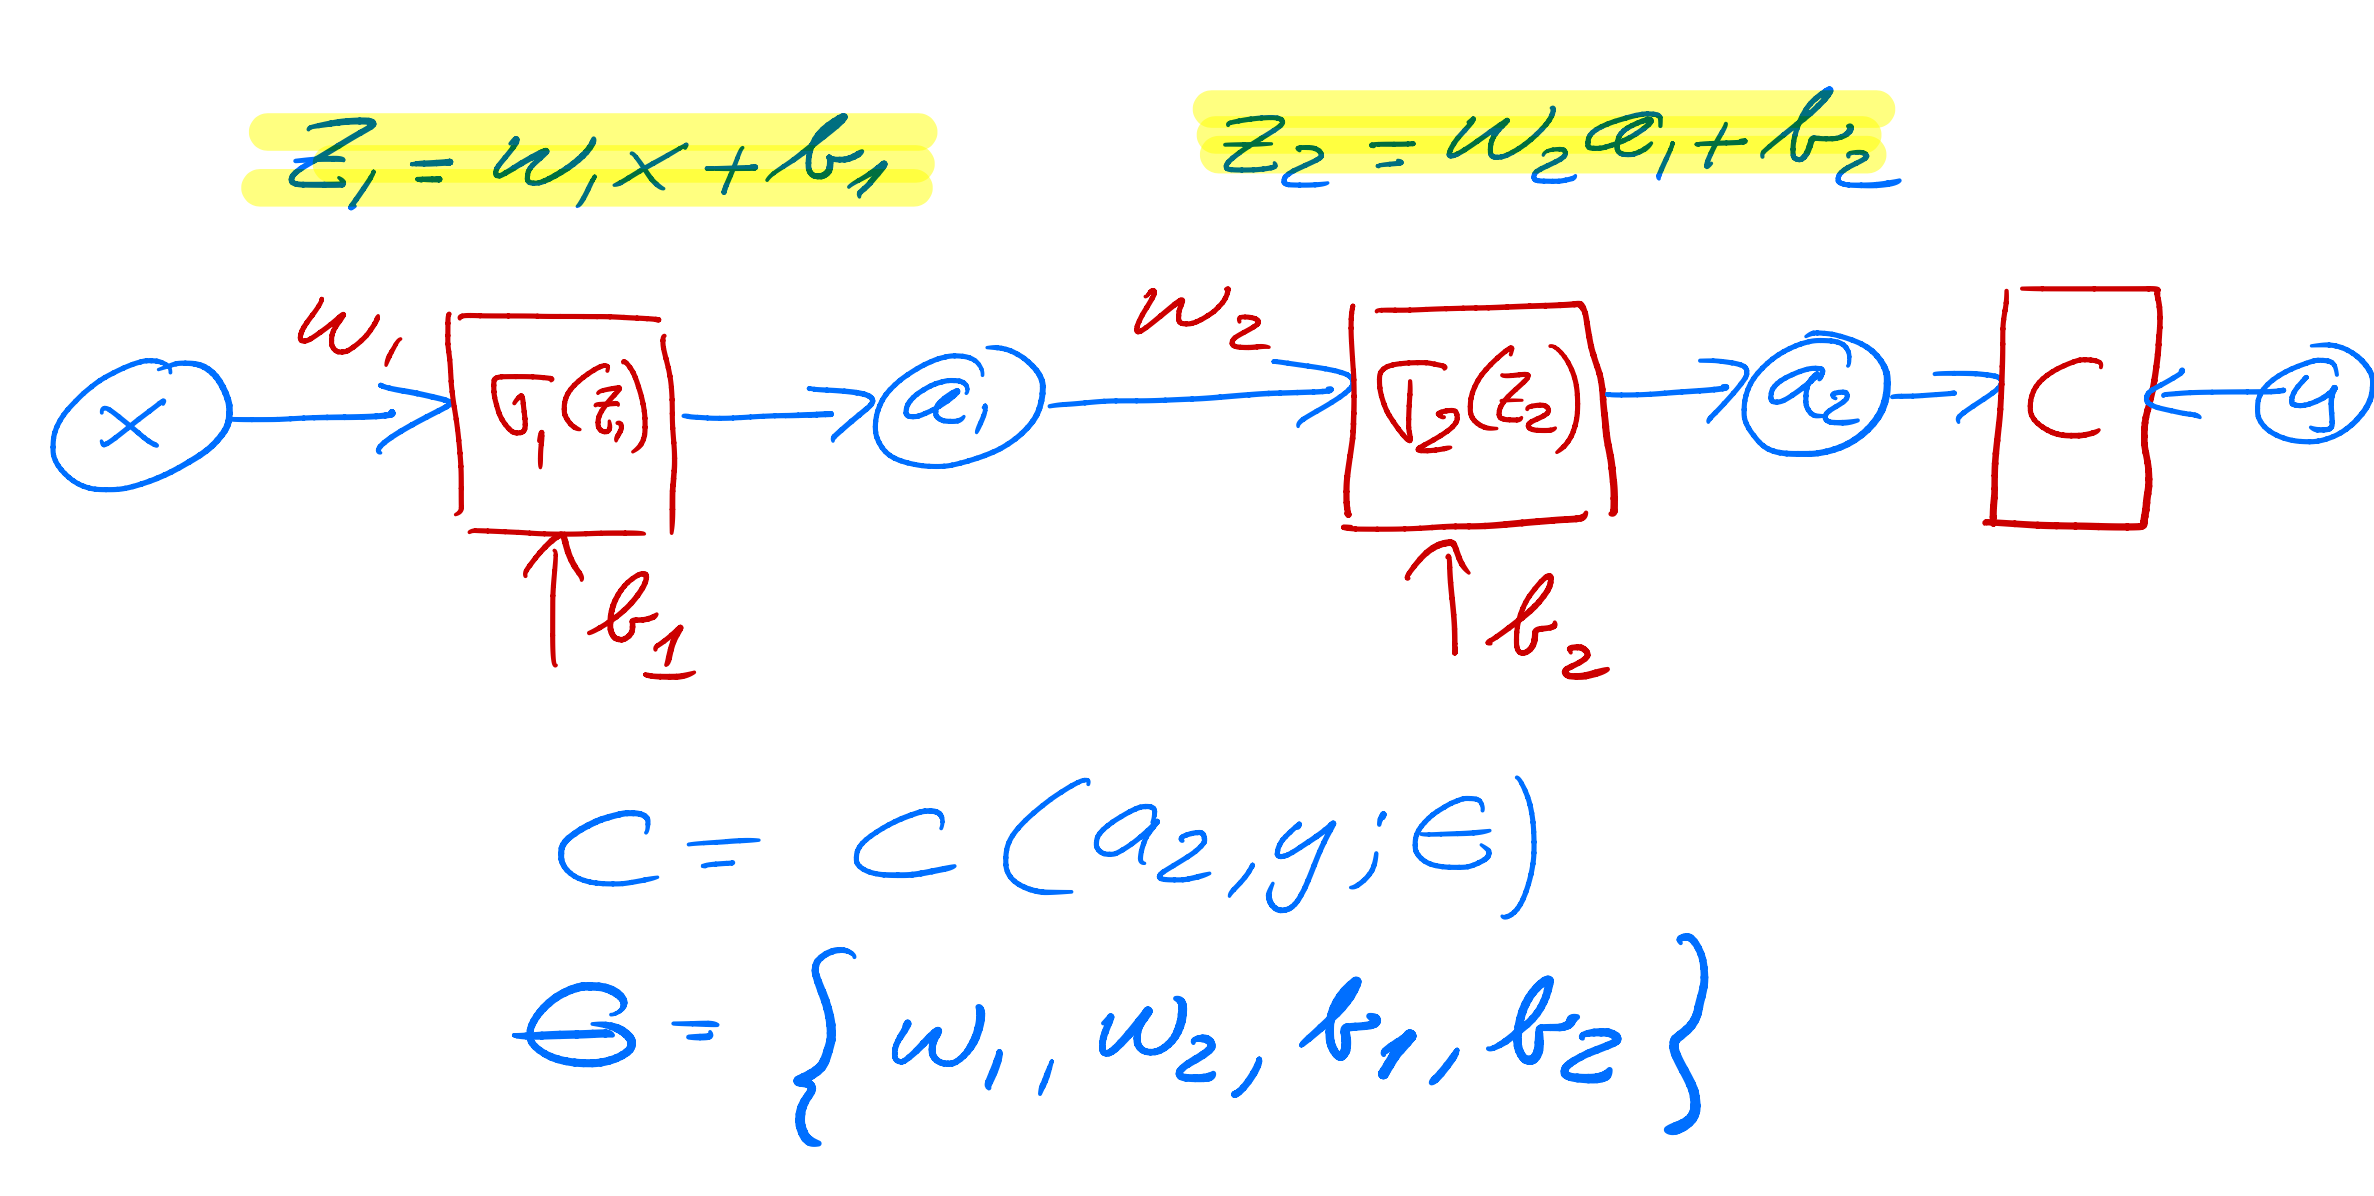 z₁ = w₁x + b₁
z₂ = w₂a₁ + b₂
x
w₁
σ₁(z₁)
b₁
a₁
w₂
σ₂(z₂)
b₂
a₂
C
y
C = C(a₂, y; Θ)
Θ = {w₁, w₂, b₁, b₂}